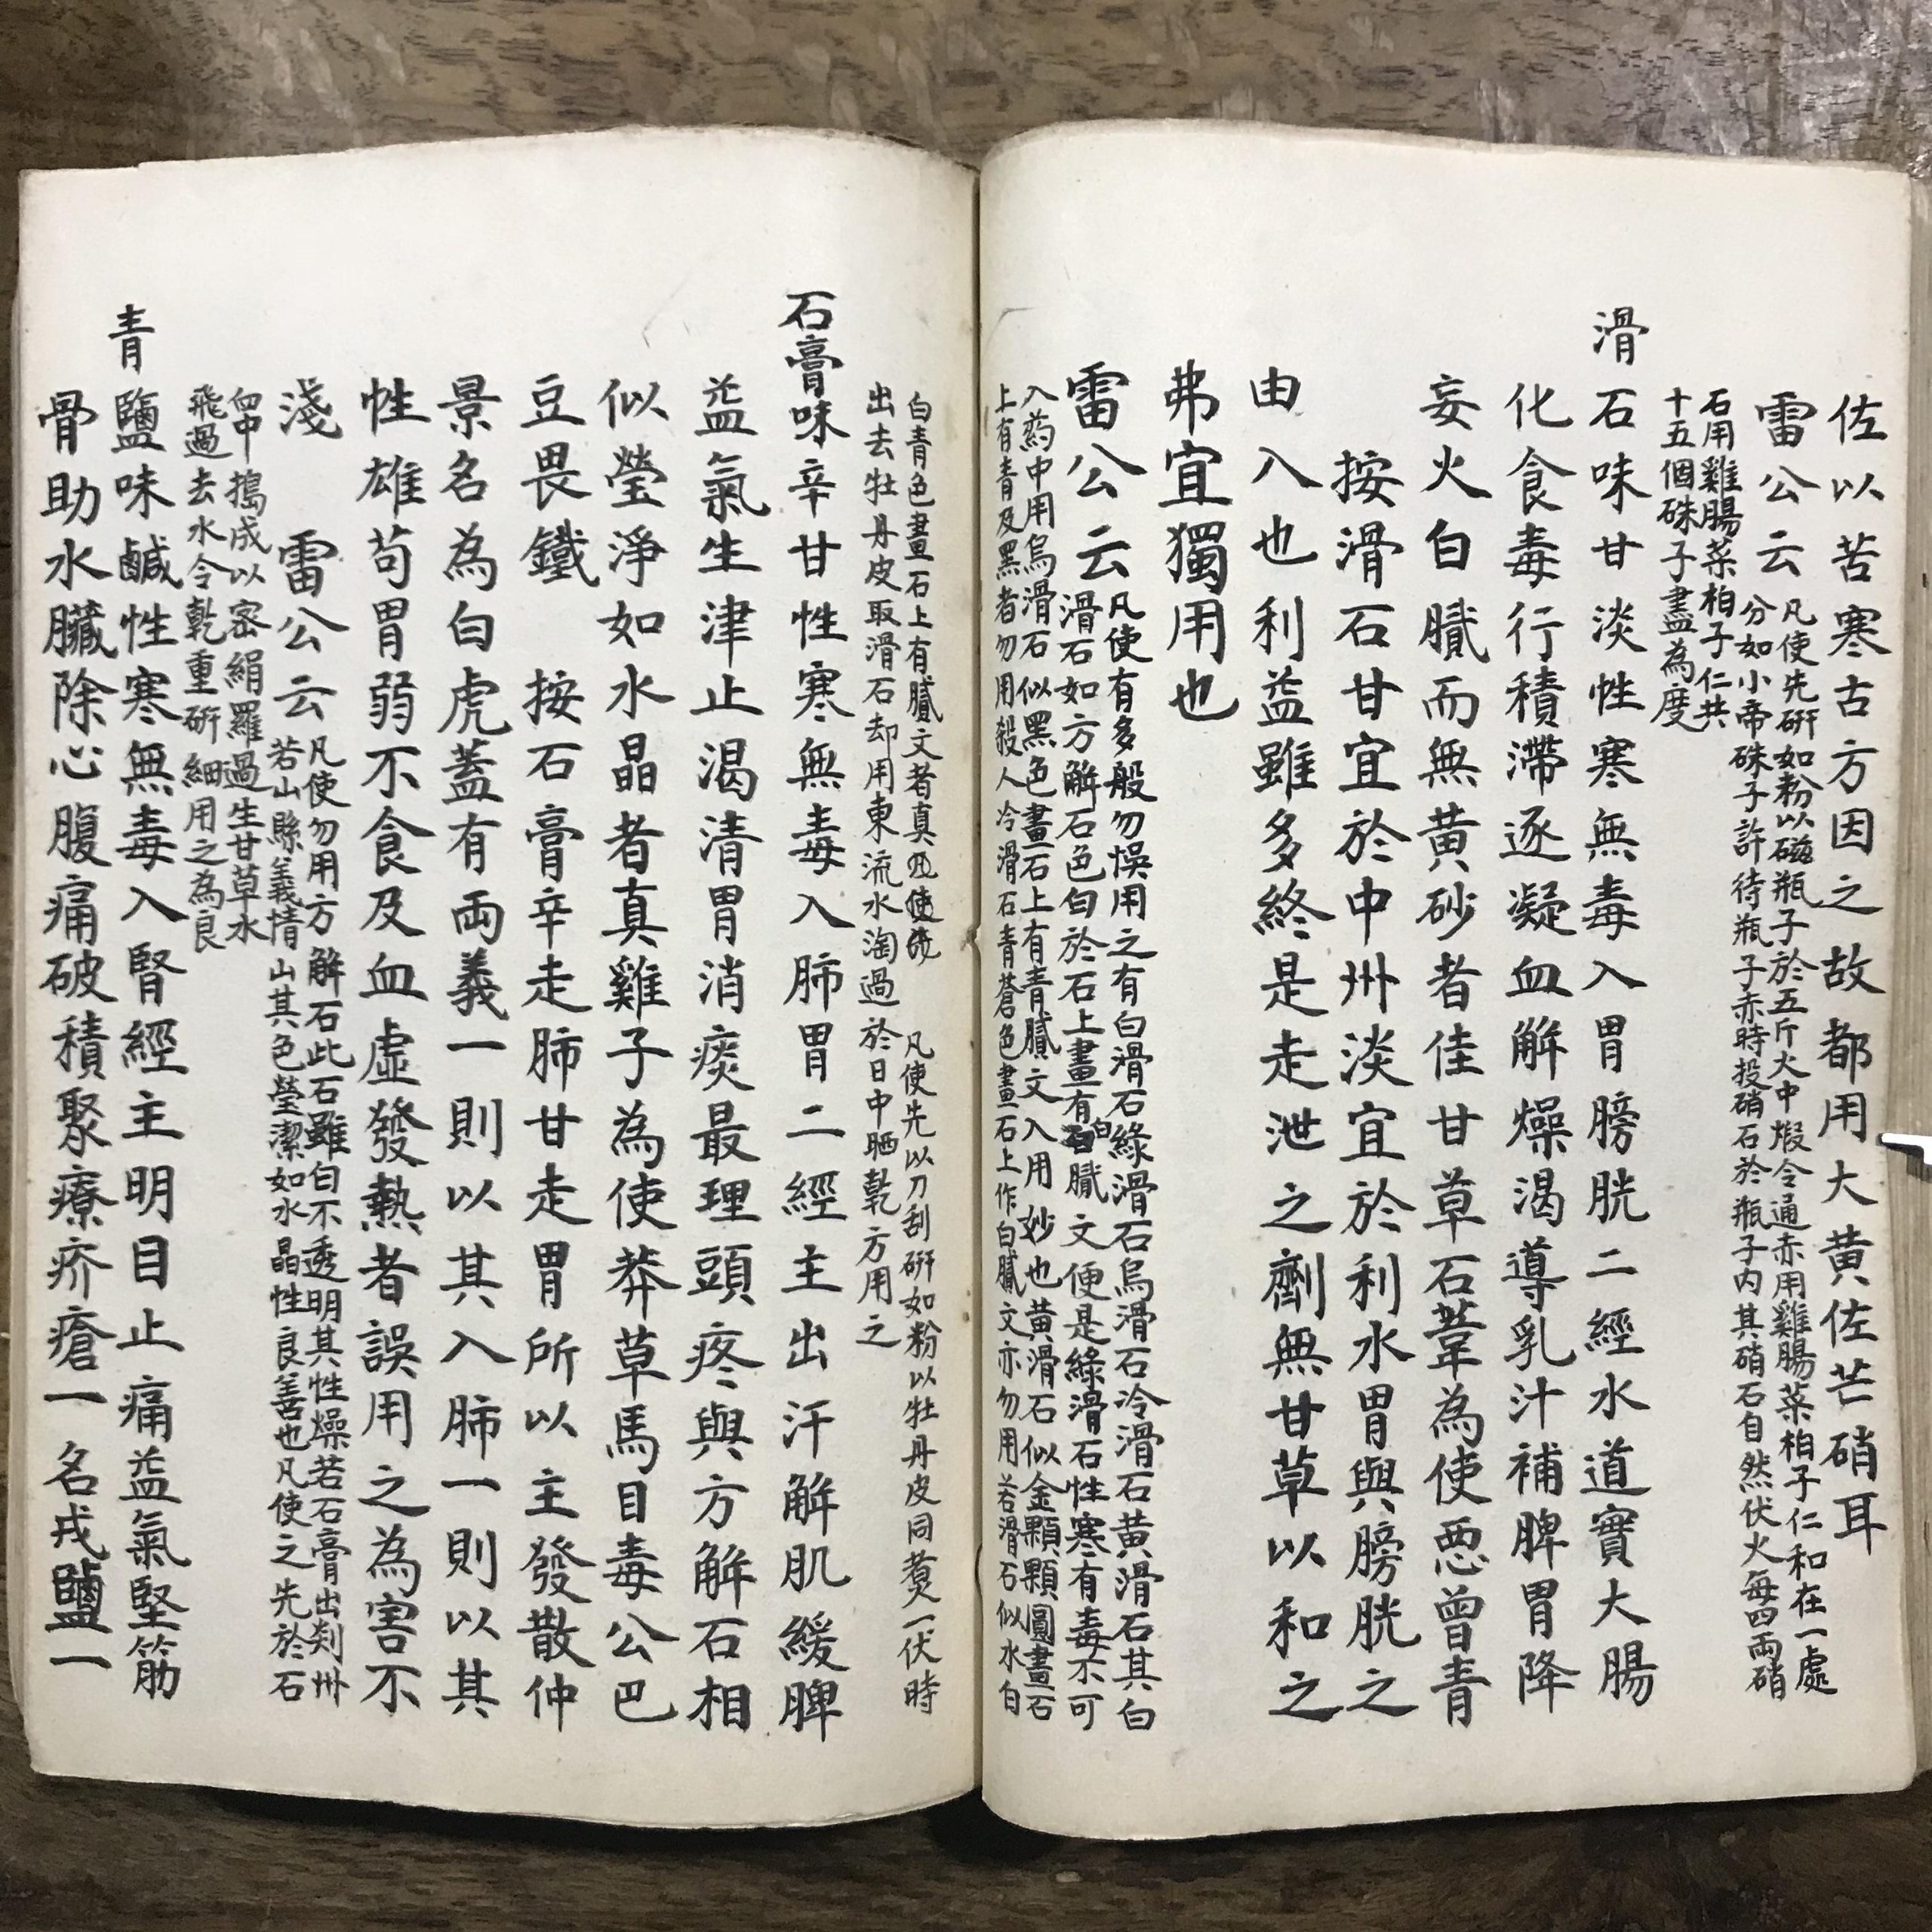 佐以苦寒古方因之故都用大黄佐芒硝耳
雷公云
凡使先研如粉以磁瓶子於五斤火中煅令通赤用雞腸菜柏子仁和在一處
分如小帝硃子許待瓶子赤時投硝石於瓶子内其硝石自然伏火每四兩硝
石用雞腸菜柏子仁共
十五個硃子盡為度
滑石味甘淡性寒無毒入胃膀胱二經水道實大腸
化食毒行積滯逐凝血解燥渴導乳汁補脾胃降
妄火白膩而無黄砂者佳甘草石葦為使惡曾青
按滑石甘宜於中州淡宜於利水胃與膀胱之
由入也利益雖多終是走泄之劑無甘草以和之
弗宜獨用也
雷公云
凡使有多般勿悞用之有白滑石綠滑石烏滑石冷滑石黄滑石其白
滑石如方解石色白於石上畫有白膩文便是綠滑石性寒有毒不可
入药中用烏滑石似黑色畫石上有青膩文入用妙也黄滑石似金顆顆圓畫石
上有青及黑者勿用殺人冷滑石青蒼色畫石上作白膩文亦勿用若滑石似水白
白青色畫石上有膩文者真 凡使先以刀刮研如粉以牡丹皮同煑一伏時
出去牡丹皮取滑石却用東流水淘過於日中晒乾方用之
石膏味辛甘性寒無毒入肺胃二經主出汗解肌緩脾
益氣生津止渴清胃消痰最理頭疼與方解石相
似瑩淨如水晶者真雞子為使莽草馬目毒公巴
豆畏鐵 按石膏辛走肺甘走胃所以主發散仲
景名為白虎蓋有両義一則以其入肺一則以其
性雄苟胃弱不食及血虛發熱者誤用之為害不
淺 雷公云
凡使勿用方解石此石雖白不透明其性燥若石膏出剡州
若山縣義情山其色瑩潔如水晶性良善也凡使之先於石
臼中搗成以密絹羅過生甘草水
飛過去水令乾重研細用之為良
青鹽味鹹性寒無毒入腎經主明目止痛益氣堅筋
骨助水臟除心腹痛破積聚療疥瘡一名戎鹽一